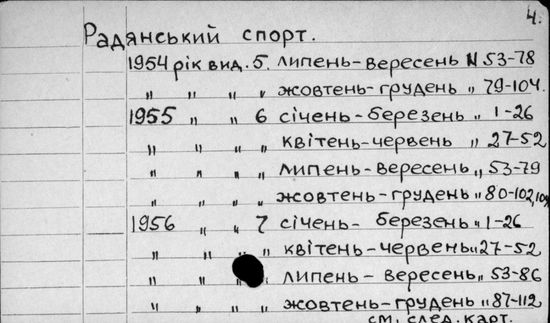 4.
Радянський спорт.
1954 рік вид. 5. липень-вересень N 53-78
" " " " жовтень-грудень " 79-104.
1955 " " 6 січень-березень " 1-26
" " " " квітень-червень " 27-52
" " " " липень-вересень " 53-79
" " " " жовтень-грудень " 80-102,104
1956 " " 7 січень- березень " 1-26
" " " квітень-червень " 27-52
" " " липень- вересень " 53-86
" " " " жовтень-грудень " 87-112
см. след. карт.